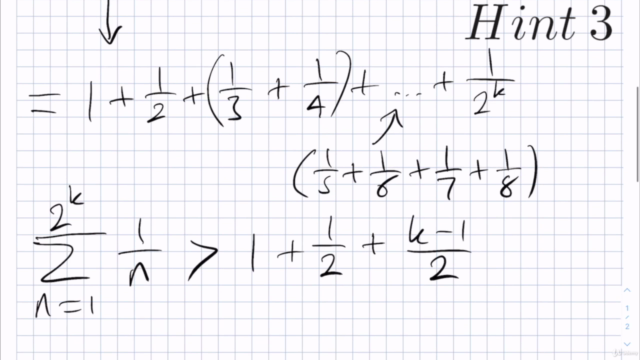 Hint 3
= 1 + 1/2 + (1/3 + 1/4) + ... + 1/2^k
(1/5 + 1/6 + 1/7 + 1/8)
∑_{n=1}^{2^k} 1/n > 1 + 1/2 + (k-1)/2
1
2